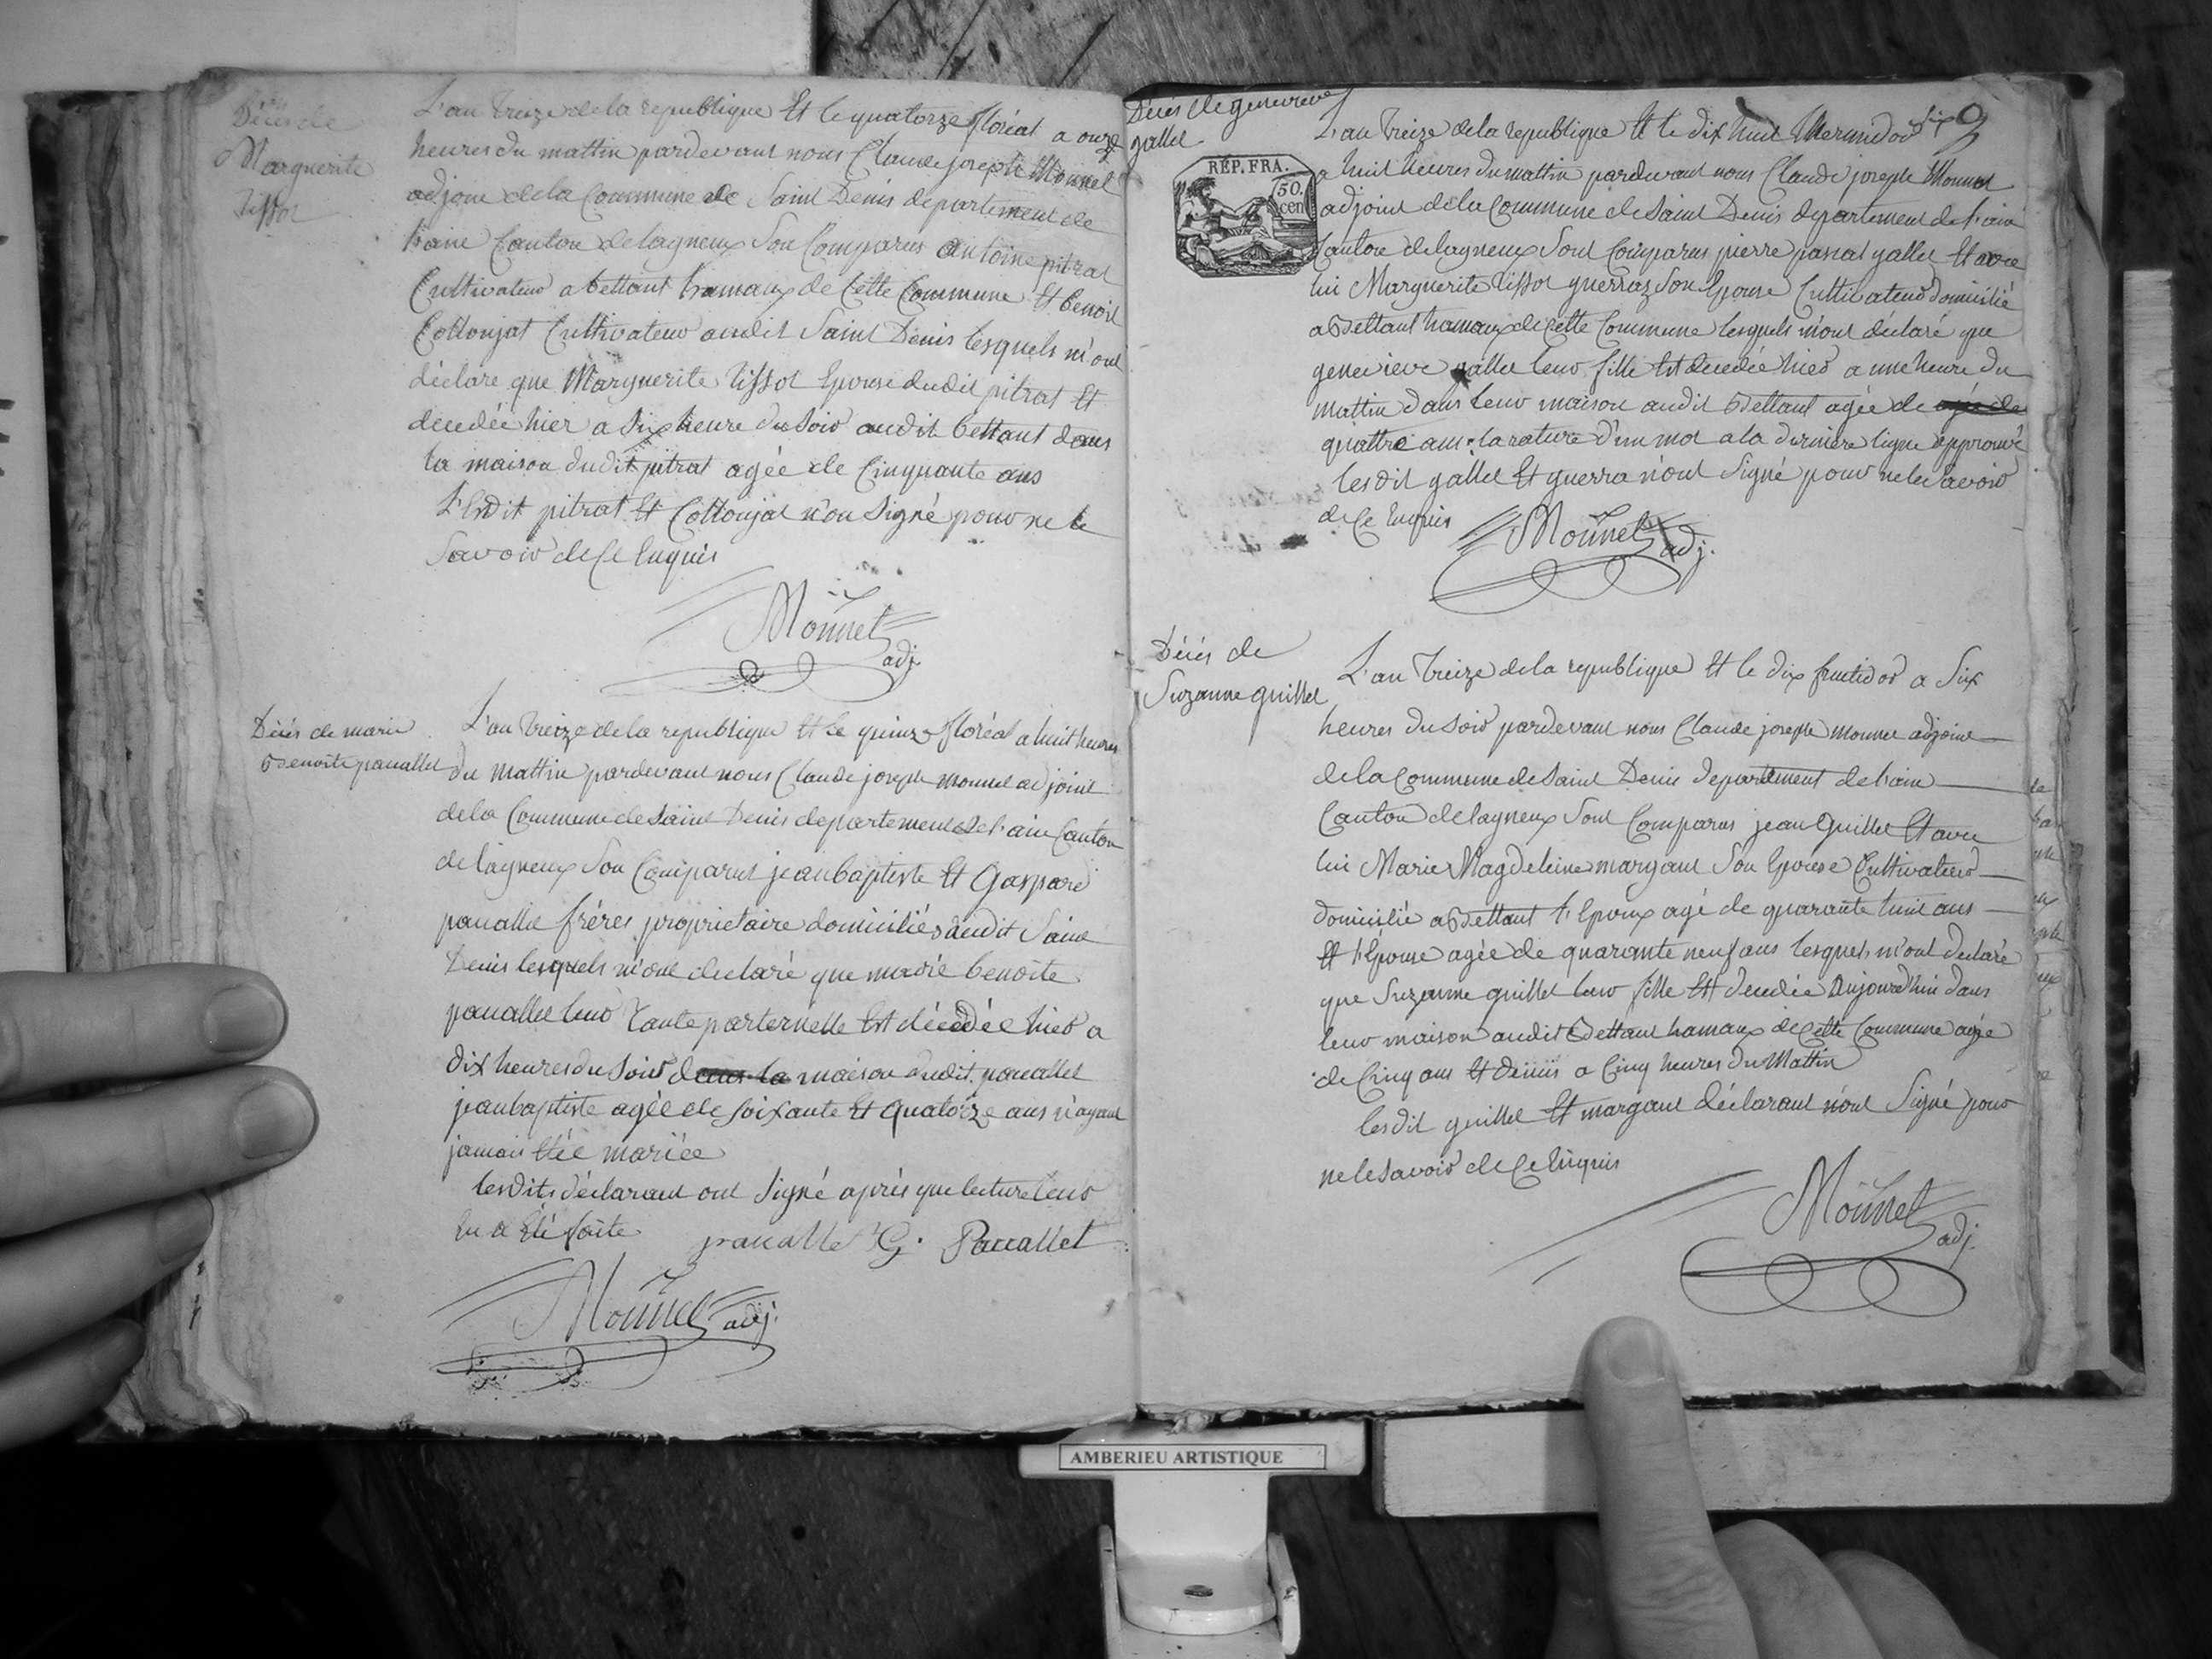 Décés de
Marguerite
Tissot
L'an treize de la republique Et le quatorze floréal a onze
heures du mattin pardevant nous Claude joseph Monnet
adjoint de la Commune de Saint Denis departement de
l'ain Canton de lagneux Son Comparus antoine pitrat
Cultivateur a bettant hamaux de Cette Commune Et benoit
Cottonjat Cultivateur audit Saint Denis lesquels m'ont
déclaré que Marguerite Tissot Epouse dudit pitrat Et
decedée hier a Six heure du Soir audit bettant dans
la maison dudit pitrat agée de Cinquante ans
Lesdit pitrat Et Cottonjat n'on Signé pour ne le
Savoir de Ce Enquis
Monnet
adj.
Décés de marie
Benoite paucallet
L'an treize de la republique Et le quinze floréal a huit heures
du mattin pardevant nous Claude joseph monnet adjoint
de la Commune de Saint Denis departement de l'ain Canton
de lagneux Son Comparus jean baptiste Et Gaspard
paucallet fréres proprietaire domiciliés audit Saint
Denis lesquels m'ont declaré que marie benoite
paucallet leur Tante parternelle Est décédée hier a
dix heures du Soir dans la maison dudit paucallet
jean baptiste agée de Soixante Et quatorze ans n'ayant
jamais Etée mariée
lesdits déclarant ont Signé aprés que lecture leur
En a Eté faite paucallet G. Paucallet
Monnet adj.
Décés de genevieve
gallet
RÉP. FRA.
50.
cen
Six
L'an treize de la republique Et le dix huit thermidor
a huit heures du mattin pardevant nous Claude joseph Monnet
adjoint de la Commune de Saint Denis departement de l'ain
Canton de lagneux Sont Comparus pierre pascal gallet Et avec
lui Marguerite Tissot guerraz Son Epouse Cultivateur domicilié
a Bettant hamaux de Cette Commune lesquels m'ont déclaré que
genevieve gallet leur fille Est decedée hier a une heure du
mattin dans leur maison audit Bettant agée de
quattre ans: la rature d'un mot a la derniére ligne approuvé
lesdit gallet Et guerra n'ont Signé pour ne le Savoir
de Ce Enquis
Monnet adj.
Décés de
Suzanne guillet
L'an treize de la republique Et le dix fructidor a Six
heures du Soir pardevant nous Claude joseph monnet adjoint
de la Commune de Saint Denis departement de l'ain
Canton de lagneux Sont Comparus jean Guillet Et avec
lui Marie Magdeleine margant Son Epouse Cultivateurs
domicilié a Bettant l'Epoux agé de quarante huit ans
Et l'Epouse agée de quarante neuf ans lesquels m'ont declaré
que Suzanne guillet leur fille Est decedée aujourdhui dans
leur maison audit Bettant hamaux de Cette Commune agée
de Cinq ans Et demis a Cinq heures du Mattin
lesdit guillet Et margant déclarant n'ont Signé pour
ne le Savoir de Ce Enquis
Monnet
adj.
AMBERIEU ARTISTIQUE